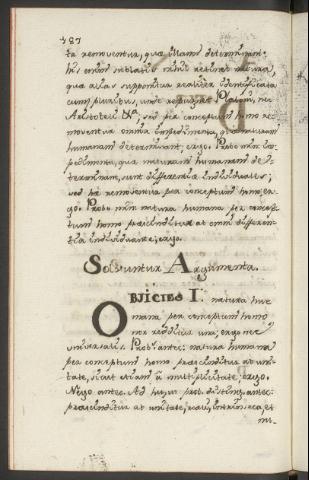 187
ta removentur, quæ illam determinan.
his enim sublatis nihil retinet natura,
qua alias supposita realiter identificata
cum pluribus, unde repugnet Platoni, nec
Aristoteli. sed per conceptum homo re
moventur omnia impedimenta, quæ naturam
humanam determinant; ergo. Probo min. im
pedimenta, quæ naturam humanam de
terminant, sunt differentiæ individuales;
sed hæ removentur per conceptum homo; er
go. Probo min. natura humana per concep
tum homo præscinditur ab omni differen
tia individuante; ergo.
Solvuntur Argumenta.
OBJICIES I. natura hu
mana per conceptum homo
non redditur una; ergo nec
universalis. Prob. antec. natura humana
per conceptum homo præscinditur ab uni
tate, sicut etiam a multiplicitate; ergo.
Nego antec. Ad hujus prob. disting. antec.
præscinditur ab unitate, et